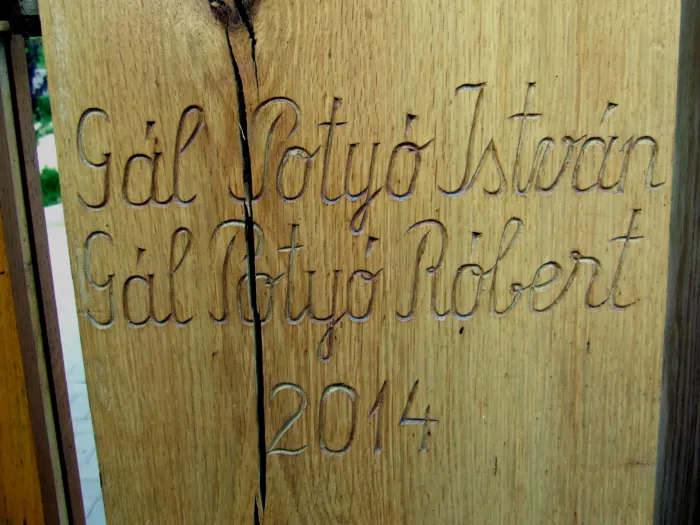 Gál Potyó István
Gál Potyó Róbert
2014